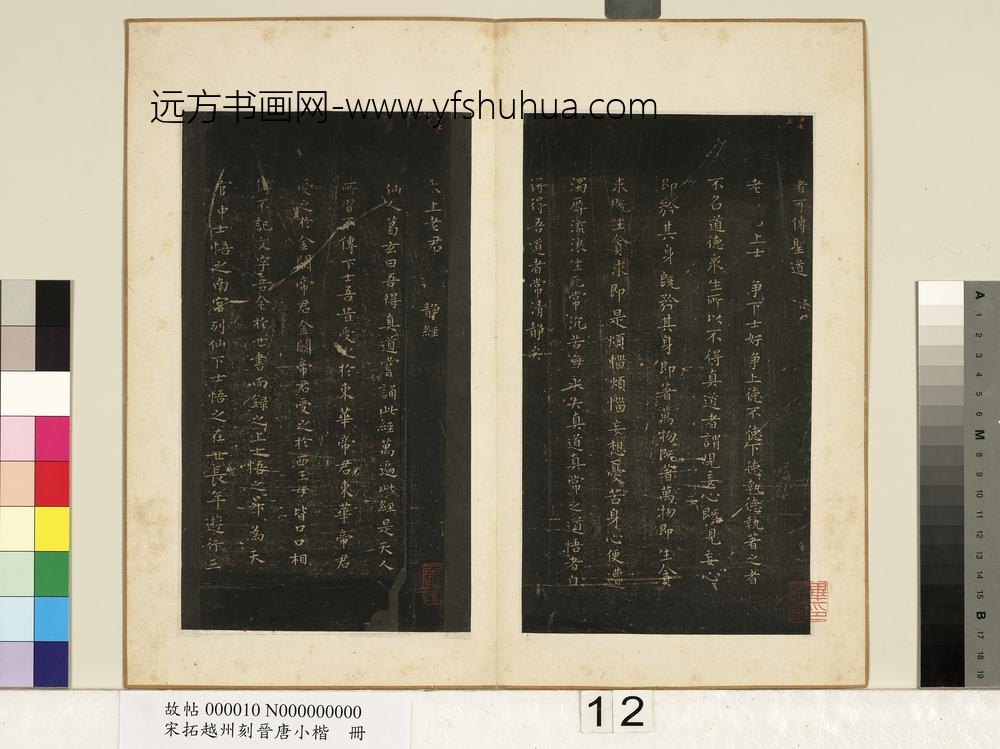 远方书画网-www.yfshuhua.com
者可傳聖道
老 上士 爭下士好爭上德不德下德執德執著之者
不名道德衆生所以不得真道者謂現妄心既見妄心
即 其身既 其身即著萬物既著萬物即生貪
求既生貪求即是煩惱煩惱妄想憂苦身心便遭
濁辱流浪生死常沉苦海 失真道真常之道悟者自
得得吾道者常清靜矣
上老君 靜經
仙人葛玄曰吾得真道嘗誦此經萬遍此經是天人
所習不傳下士吾昔受之於東華帝君東華帝君
受之於金闕帝君金闕帝君受之於西王母皆口口相
傳不記文字吾今於世書而錄之上士悟之昇為天
官中士悟之南宮列仙下士悟之在世長年遊行三
故帖 000010 N000000000
宋拓越州刻晉唐小楷 冊
12
A 1 2 3 4 5 6 M 8 9 10 11 12 13 14 15 B 17 18 19